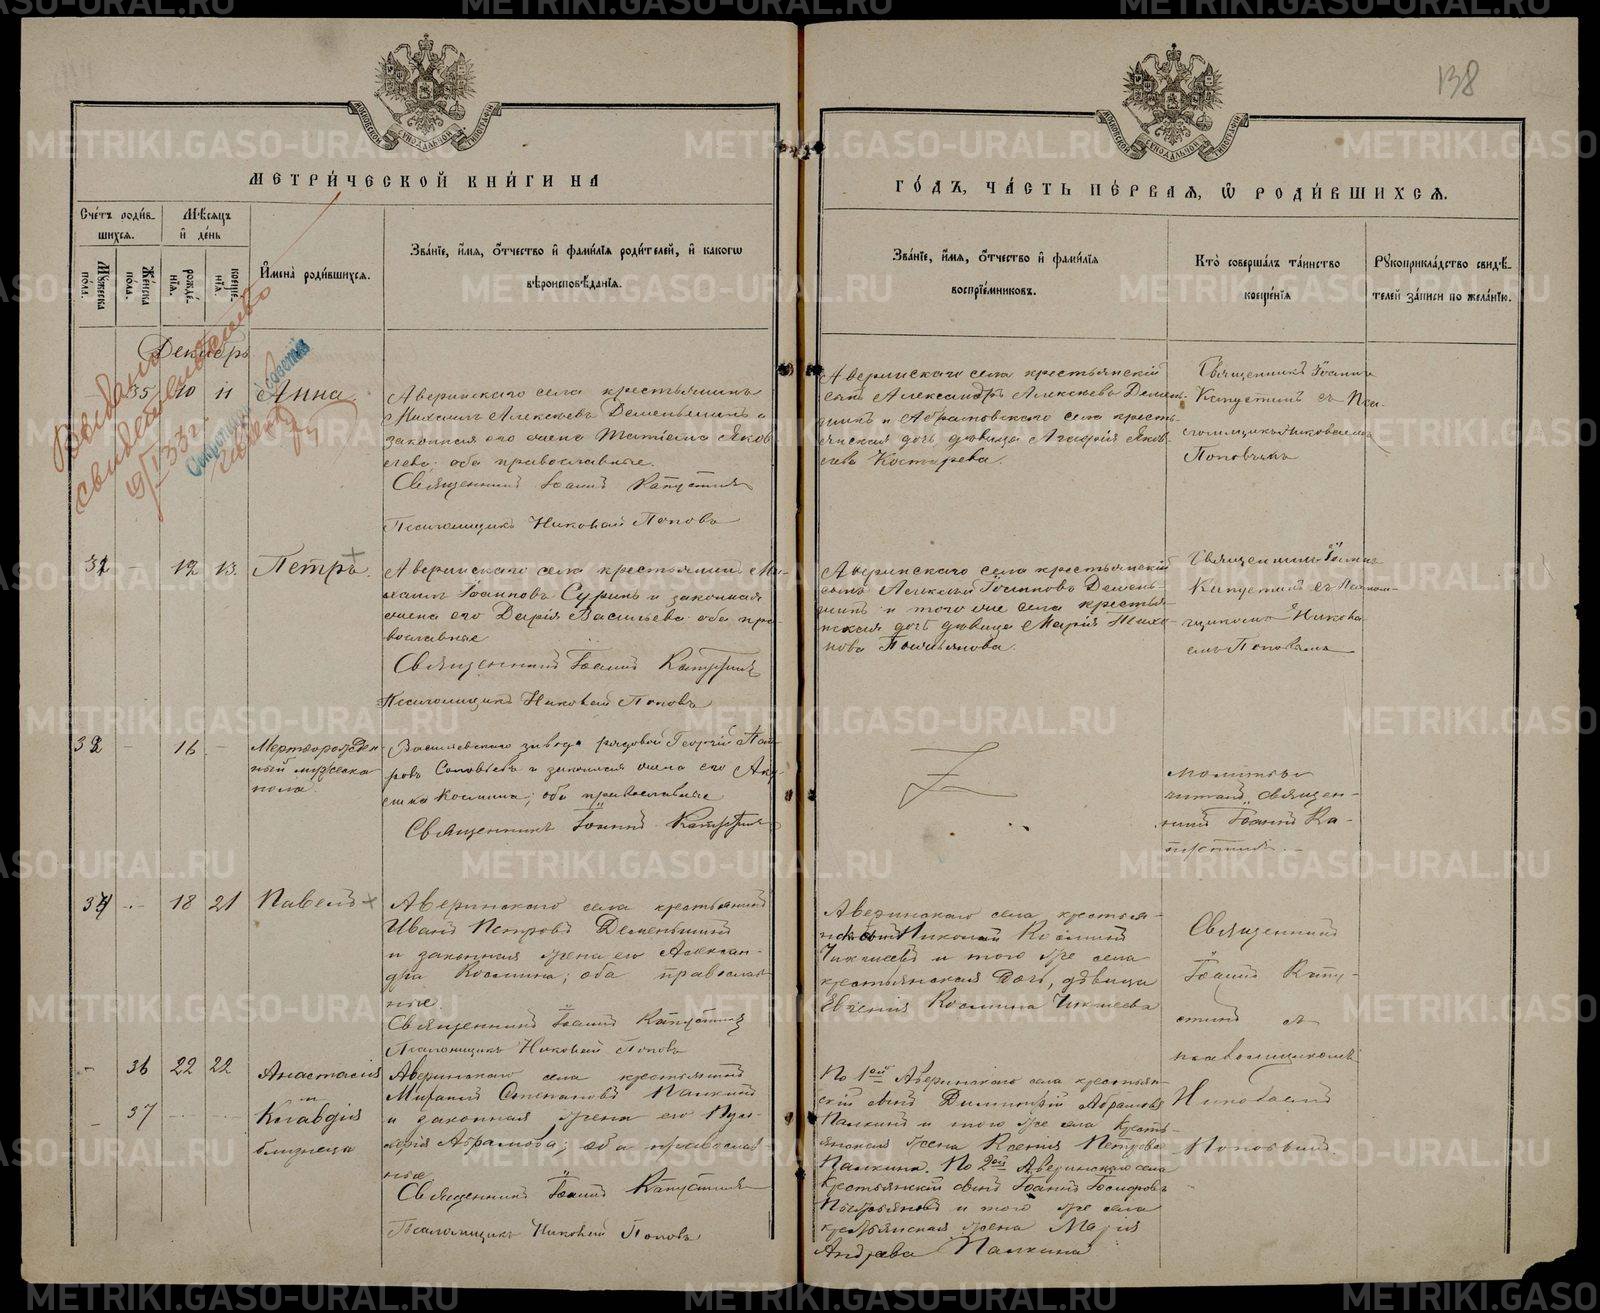 138
МОСКОВСКОЙ СѴНОДАЛЬНОЙ ТИПОГРАФІИ
МОСКОВСКОЙ СѴНОДАЛЬНОЙ ТИПОГРАФІИ
МЕТРИ́ЧЕСКОЙ КНИ́ГИ НА
ГО́ДЪ, ЧА́СТЬ ПЕ́РВАЯ, Ѿ РОДИ́ВШИХСЯ.
Сче́тъ роди́в-
шихся.
Мꙋ́жеска по́ла.
Же́нска по́ла.
Мѣ́сяцъ
и҆ де́нь
рожде́-нїя.
креще́-нїя.
И҆мена̀ роди́вшихся.
Зва́нїе, и҆́мя, ѻ҆́тчество и҆ фами́лїя роди́телей, и҆ како́гѡ
вѣроисповѣ́данїя.
Зва́нїе, и҆́мя, ѻ҆́тчество и҆ фами́лїя
воспрїе́мниковъ.
Кто̀ соверша́лъ та́инство
креще́нїя
Рꙋкоприкла́дство свидѣ́-
телей за́писи по жела́нїю.
Декабрь
Выдано
свидетельство
19/I 33 г.
35 10 11 Анна
Аверинскаго села крестьянинъ
Михаилъ Алексѣевъ Деменьшинъ и
законная его жена Татіана Яков
лева; оба православные.
Священникъ Іоаннъ Капустинъ
Псаломщикъ Николай Поповъ
Аверинскаго села крестьянскій
сынъ Александръ Алексѣевъ Демень-
шинъ и Абрамовскаго села кресть-
янская дочь дѣвица Агафія Яков
лева Костарева.
Священникъ Іоаннъ
Капустинъ съ Пса-
ломщикомъ Николаемъ
Поповымъ
32 - 12 13. Петръ.
Аверинскаго села крестьянинъ Ми-
хаилъ Іоанновъ Суринъ и законная
жена его Дарія Васильева оба пра-
вославные
Священникъ Іоаннъ Капустинъ
Псаломщикъ Николай Поповъ
Аверинскаго села крестьянскій
сынъ Алексѣй Іоанновъ Демень-
шинъ и того же села крестья-
нская дочь дѣвица Марія Тихо-
нова
Священникъ Іоаннъ
Капустинъ съ Псалом-
щикомъ Никола-
емъ Поповымъ
33 - 16 - Мертворожден-
ный мужеска
пола.
завода рядовой Георгій
ровъ Соловьевъ и законная жена его Аку-
лина Космина; оба православные
Священникъ Іоаннъ Капустинъ
Молитвы
читалъ Священ-
никъ Іоаннъ Ка-
пустинъ
34 - 18 21 Павелъ
Аверинскаго села крестьянинъ
Иванъ Петровъ Деменьшинъ
и законная жена его Алексан-
дра Космина; оба православ-
ные.
Священникъ Іоаннъ Капустинъ
Псаломщикъ Николай Поповъ
Аверинскаго села крестья-
нскій сынъ Николай Косминъ
Чикишевъ и того же села
крестьянская дочь, дѣвица
Евгенія Космина Чикишева
Священникъ
Іоаннъ Капу-
стинъ съ
псаломщикомъ
Николаемъ
Поповымъ.
- 36 22 22 Анастасія
и
- 37 Клавдія
близнецы
Аверинскаго села крестьянинъ
Михаилъ Степановъ Палкинъ
и законная жена его Пул-
херія Абрамова; оба православ
ные
Священникъ Іоаннъ Капустинъ
Псаломщикъ Николай Поповъ
По 1ой Аверинскаго села крестьян-
скій сынъ Димитрій Абрамовъ
Палкинъ и того же села кресть-
янская жена Ксенія Петрова
Палкина. По 2ой Аверинскаго села
крестьянскій сынъ Іоаннъ
и того же села
крестьянская жена Марія
Андреева Палкина